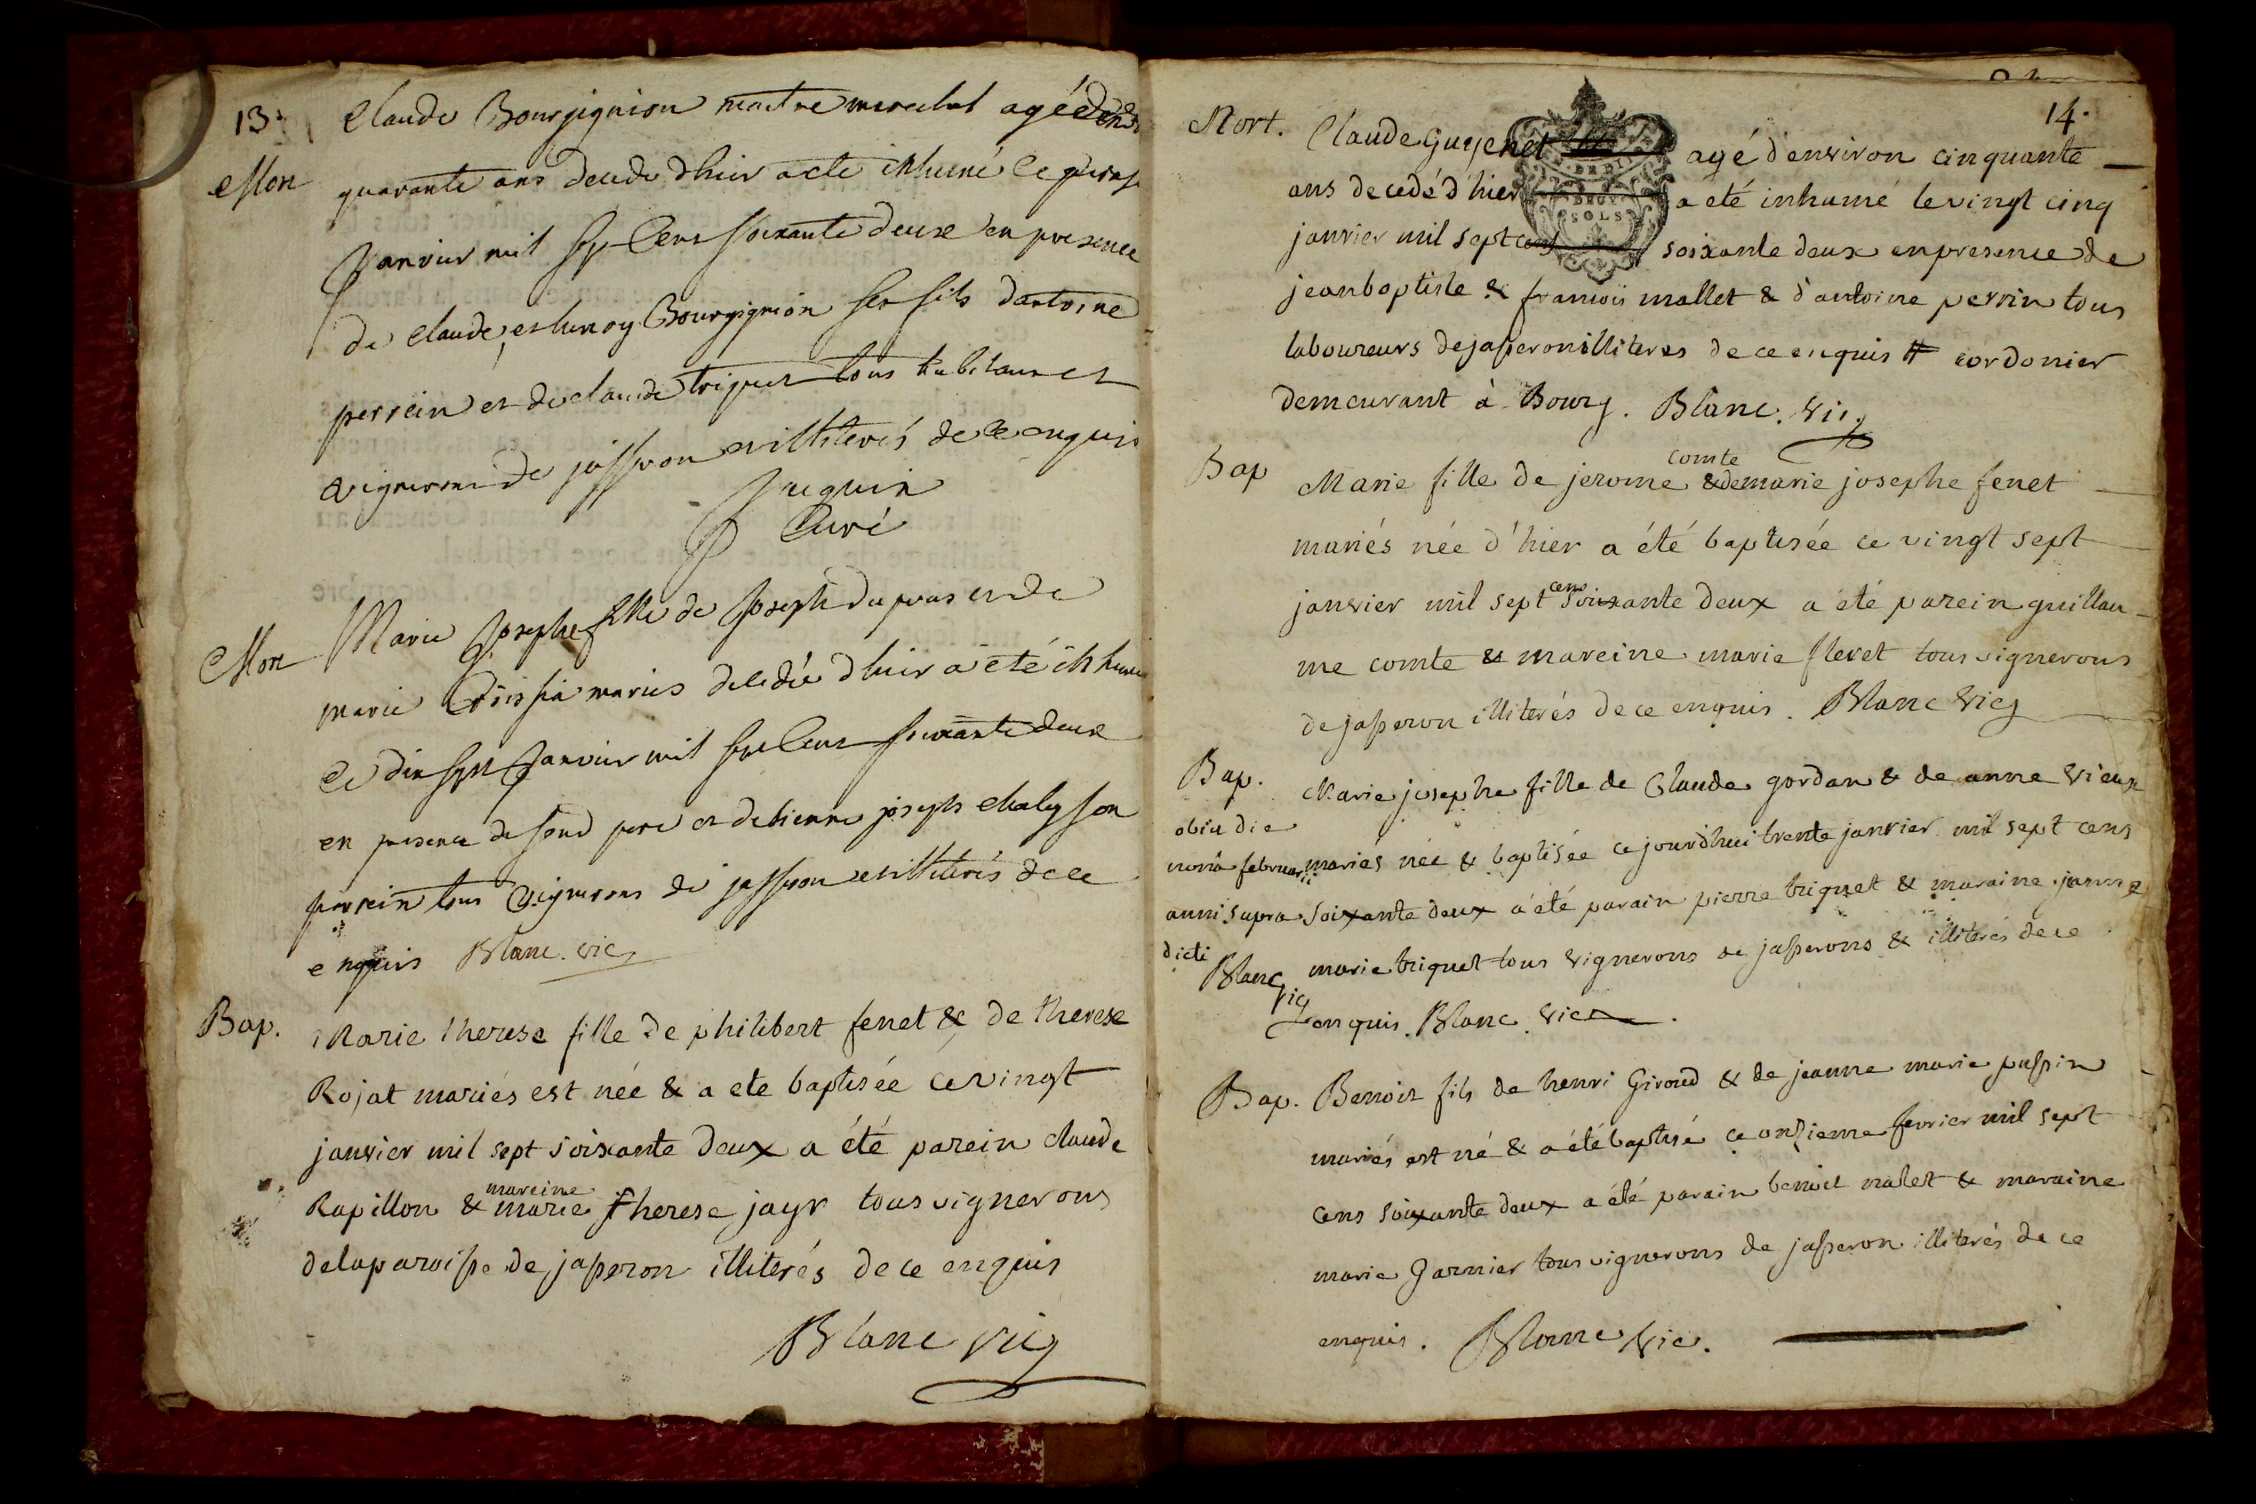 13.
Mort
Claude Bourgignion maitre marechal agé
quarante ans decede dhier a ete inhumé ce
janvier mil sept cens soixante deux en presence
de claude et Bourgignion ses fils dantoine
perrein et de claude triquet tous habitans et
vignerons de jasseron illiterés de ce enquis
curé
Mort
Marie josephe fille de joseph dupuis et de
marie mariés decedée dhier a été inhumée
ce dix sept janvier mil sept cens soixante deux
en presence de sond pere et detienne joseph
perrein tous vignerons de jasseron illiterés de ce
enquis Blanc vic
Bap.
Marie therese fille de philibert fenet & de therese
Rojat mariés est née & a ete baptisée ce vingt
janvier mil sept soixante deux a été parein claude
mareine
Rapillon & marie therese jayr tous vignerons
delaparoisse de jasseron illiterés de ce enquis
Blanc vic
14.
Mort.
Claude Guyenet agé d'environ cinquante
ans decedé d'hier a été inhumé le vingt cinq
DEUX
SOLS
janvier mil sept cens soixante deux en presence de
jean baptiste & francois mallet & d'antoine perrin tous
laboureurs de jasseron illiteres de ce enquis # cordonier
demeurant à Bourg. Blanc. vic
Bap
comte
Marie fille de jerome & de marie josephe fenet
mariés née d'hier a été baptisée ce vingt sept
cens
janvier mil sept soixante deux a été parein guillau-
me comte & mareine marie fleret tous vignerons
de jasseron illiterés de ce enquis. Blanc vic
Bap.
Marie josephe fille de Claude gordan & de anne vieux
mariés née & baptisée ce jourdhui trente janvier mil sept cens
soixante deux a été parain pierre triquet & maraine jeanne
marie triquet tous vignerons de jasserons & illiterés de ce
enquis. Blanc vic.
obiit die
nona februarii
anni supra
dicti
Blanc
vic
Bap.
Benoit fils de henri Giroud & de jeanne marie puspin
mariés est né & a été baptisé ce onzieme fevrier mil sept
cens soixante deux a été parain benoit malet & maraine
marie Garnier tous vignerons de jasseron illiterés de ce
enquis. Blanc vic.